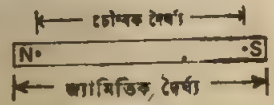 চৌম্বক দৈর্ঘ্য
N S
জ্যামিতিক দৈর্ঘ্য